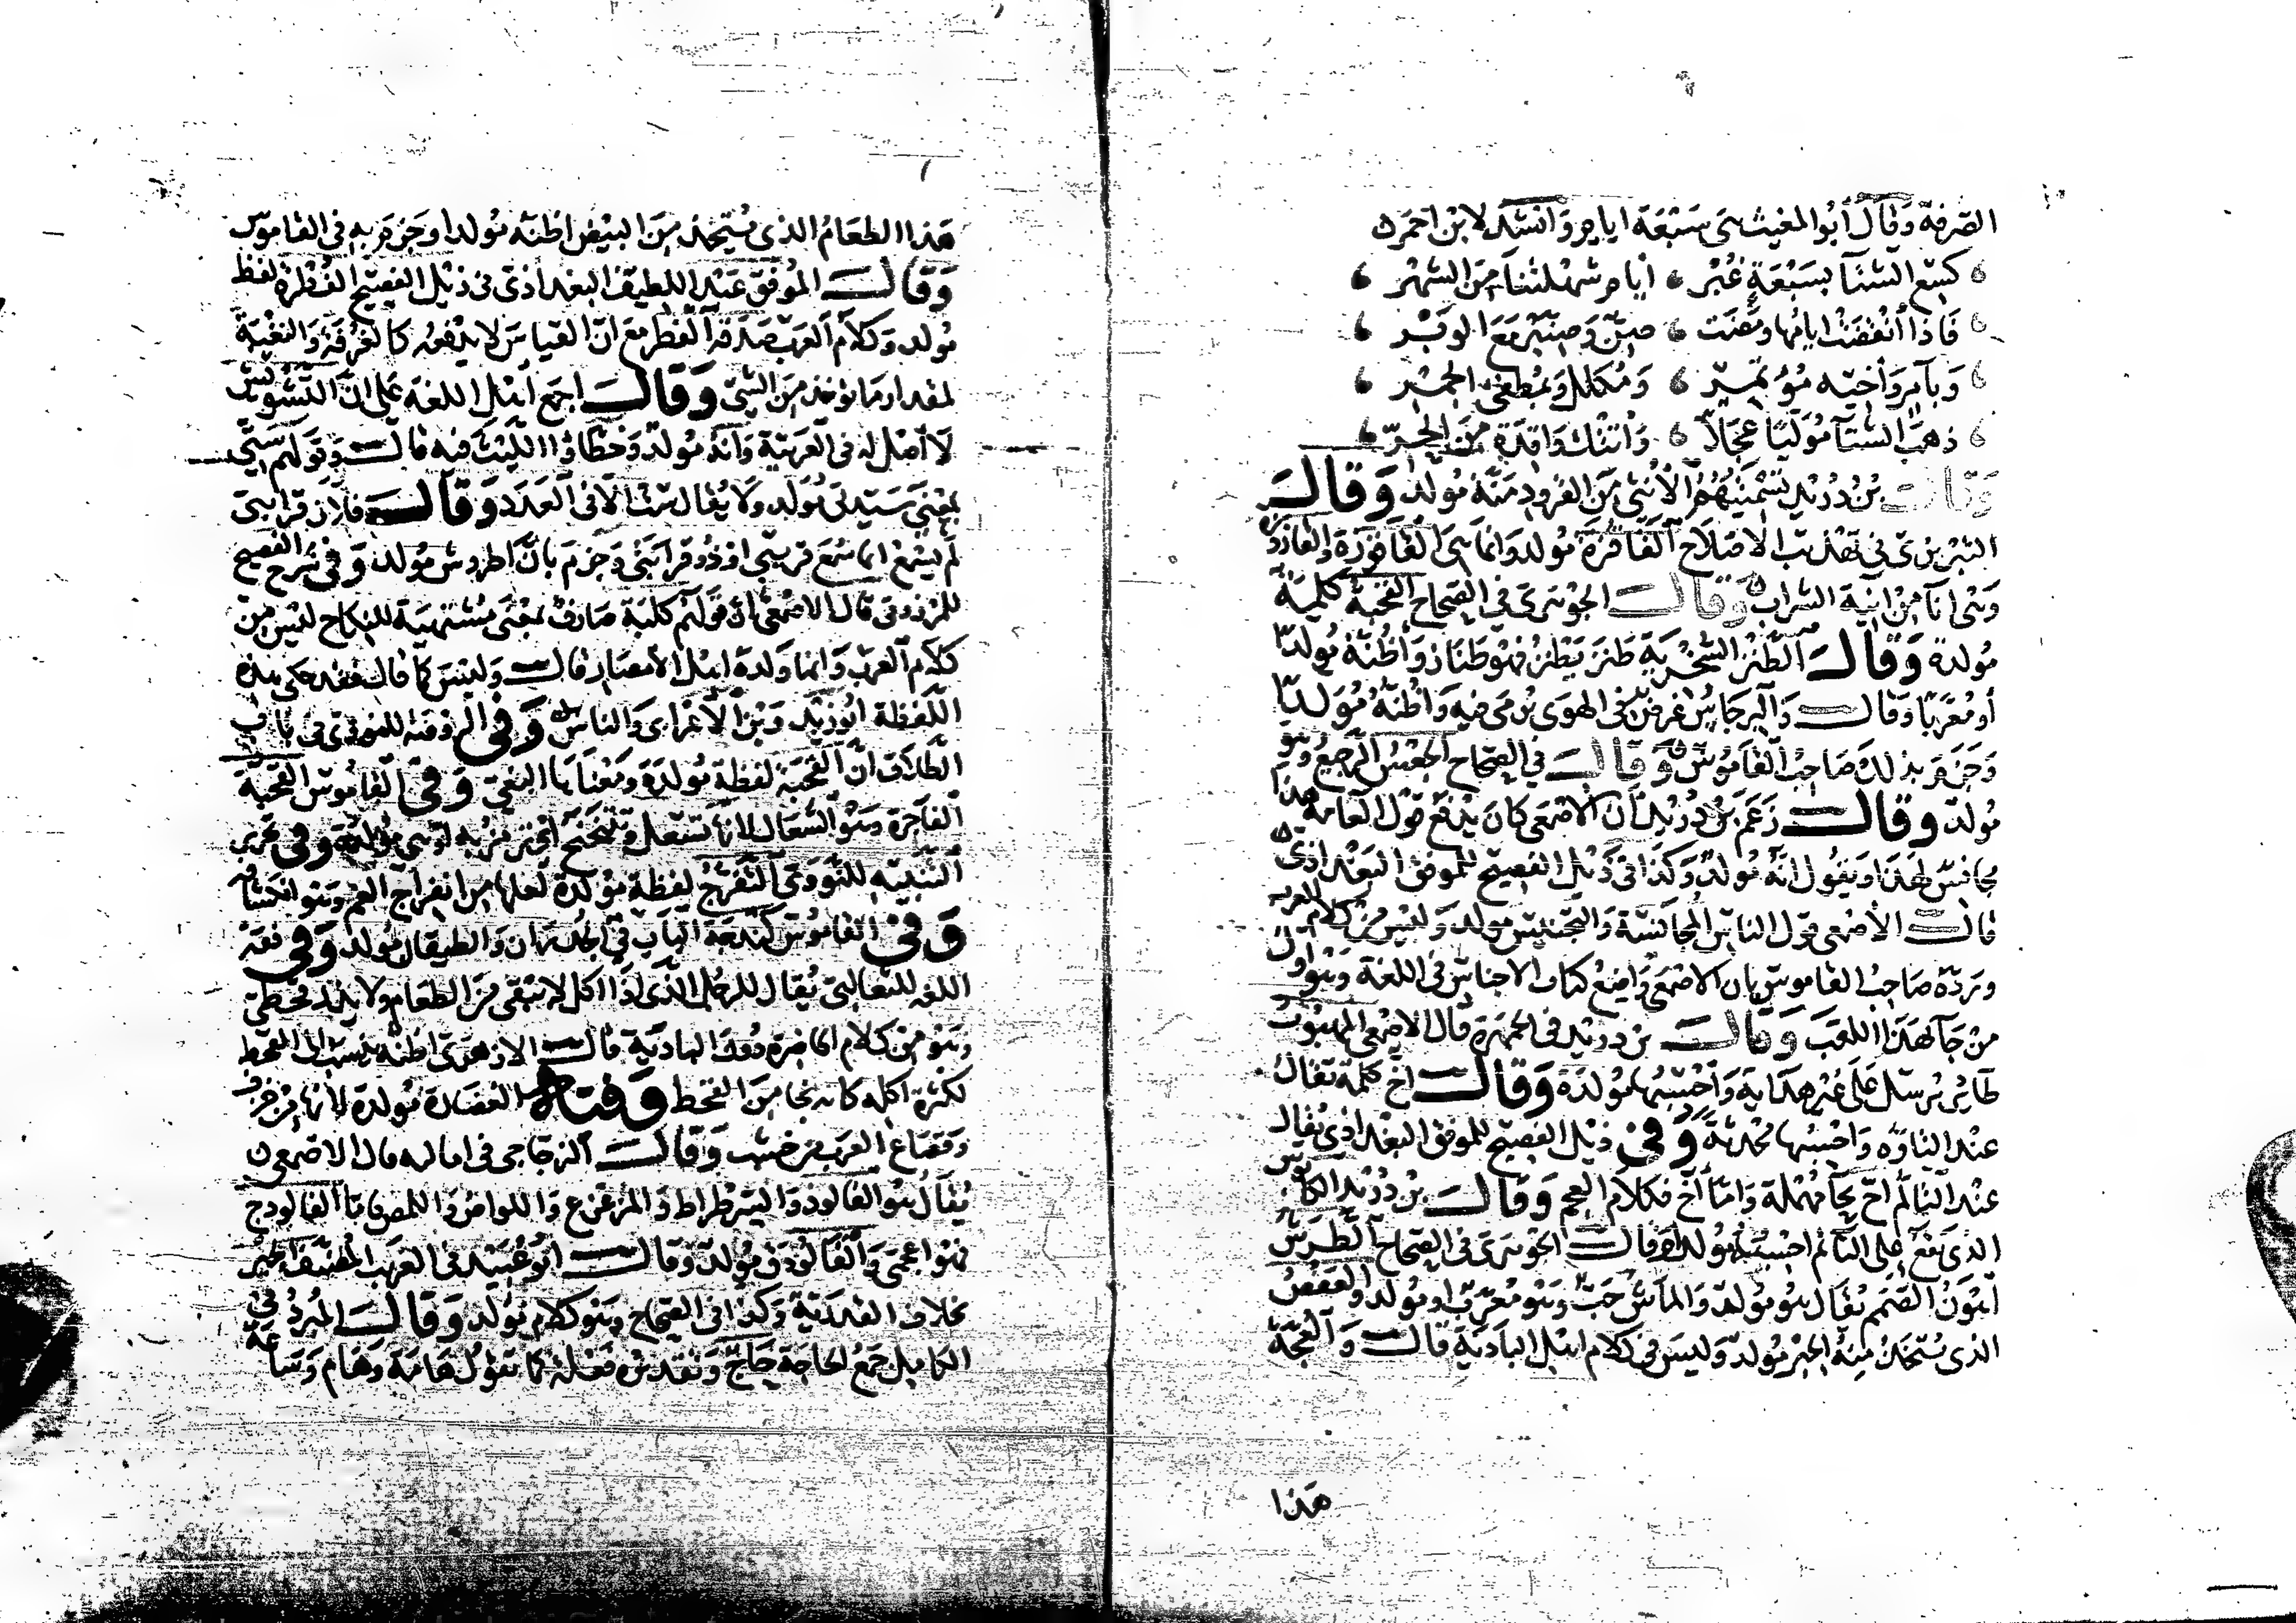 الصرفة وقال أبو المغيث هي سبعة ايام وانشد لابن احمر
كسع الشتا بسبعة غبر ايام شهلتنا من الشهر
فاذا انقضت ايامها ومضت صن وصنبر مع الوبر
وبآمر وأخيه مؤتمر ومكلل وبمطفئ الجمر
ذهب الشتا موليا عجلا وأتتك واقدة من الحر
وقال بن دريد تسميتهم الأنثى من القرود منة مولد وقال
التبريزي في تهذيب الاصلاح القاقزة مولد وانما هي القاقوزة والقازوزة
وهي انا من انية الشراب وقال الجوهري في الصحاح القحبة كلمة
مولدة وقال الطنز السخرية طنز يطنز فهو طناز وأظنه مولدا
أو معربا وقال والبرجاس غرض في الهوى يرمى فيه وأظنه مولدا
وجزم بذلك صاحب القاموس وقال في الصحاح الجعس الرجيع وهو
مولد وقال زعم بن دريد أن الاصمعي كان يدفع قول العامة هذا
مجانس لهذا ويقول انه مولد وكذا في ذيل الفصيح للموفق البغدادي
قال الأصمعي قول الناس المجانسة والتجنيس مولد وليس من كلام العرب
ورده صاحب القاموس بان الاصمعي واضع كتاب الاجناس في اللغة وهو اول
من جآ بهذا اللقب وقال بن دريد في الجمهرة قال الاصمعي المهبوت
طاير يرسل على غير هداية وأحسبها مولدة وقال أخ كلمة تقال
عند التاوه واحسبها محدثة وفي ذيل الفصيح للموفق البغدادي يقال
عند التالم اح بحآ مهملة واما أخ فكلام العجم وقال بن دريد الكابوس
الذي يقع على النآئم احسبه مولدا وقال الجوهري في الصحاح الطرش
أهون الصمم يقال هو مولد والماش حب وهو معرب او مولد والعفص
الذي يتخذ منه الحبر مولد وليس في كلام اهل البادية قال والعجة
هذا
هذا الطعام الذي يتخذ من البيض اظنه مولدا وجزم به في القاموس
وقال الموفق عبد اللطيف البغدادي في ذيل الفصيح الفطرة لفظ
مولد وكلام العرب صدقة الفطر مع ان القياس لا يدفعه كالغرفة والنغبة
لمقدار ما يوخذ من الشي وقال اجمع اهل اللغة على ان التشويش
لا أصل له في العربية وانه مولد وخطاوا الليث فيه قال وقولهم ستي
بمعنى سيدتي مولد ولا يقال ست الا في العدد وقال فلان قرابتي
لم يسمع انما سمع قريبي او ذو قرابتي وجزم بان اطروش مولد وفي شرح الفصيح
للمرزوقي قال الاصمعي ان قولهم كلبة صارف بمعنى مشتهية للنكاح ليس من
كلام العرب وانما ولده اهل الامصار قال وليس كما قال فقد حكى هذه
اللفظة ابو زيد وبن الأعرابي والناس وفي الروضة للنووي في باب
الطلاق ان القحبة لفظة مولدة ومعناها البغي وفي القاموس القحبة
الفاجرة وهو السعال لانها تسعل وتنحنح اي ترمز به او هي مولدة وفي تحرير
التنبيه للنووي التفرج لفظة مولدة لعلها من انفراج الغم وهو انكشافه
وفي القاموس كندجة الباب في الجدران والطيقان مولد وفي فقه
اللغه للثعالبي يقال للرجل الذي اذا اكل لا يبقي من الطعام ولا يذر قحطي
وهو من كلام الحاضرة دون البادية قال الازهري اظنه ينسب الى القحط
لكثرة اكله كانه نجا من القحط وفيه الغضارة مولدة لأنها من خزف
وقصاع العرب من خشب وقال الزجاجي في اماليه قال الاصمعي
يقال هو الفالوذ والسرطراط والمزعزع واللواص واللمص واما الفالوذج
فهو اعجمي والفالوذق مولد وقال ابو عبيد في الغريب المصنف
بخلاف وكذا في الصحاح وهو كلام مولد وقال المبرد في
الكامل جمع الحاجة حاج وتقديره فعلة كما تقول هامة وهام وساعة